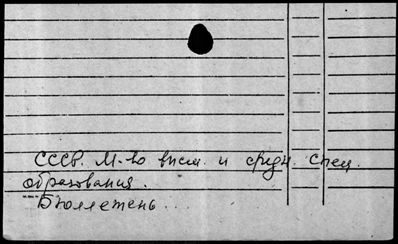 СССР. М-во высш. и средн. спец.
образования.
Бюллетень...